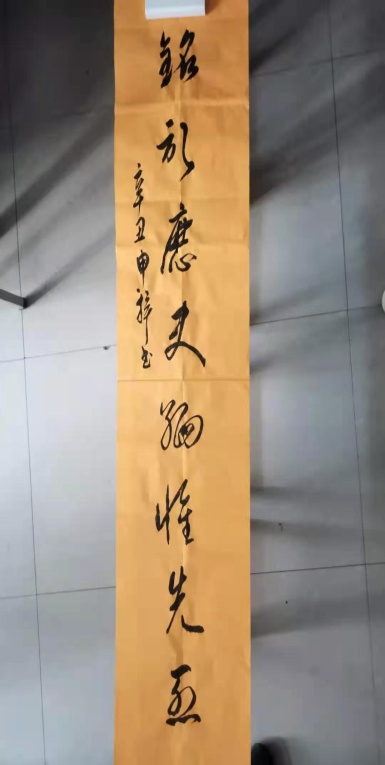 銘記歷史緬懷先烈
辛丑申梓书